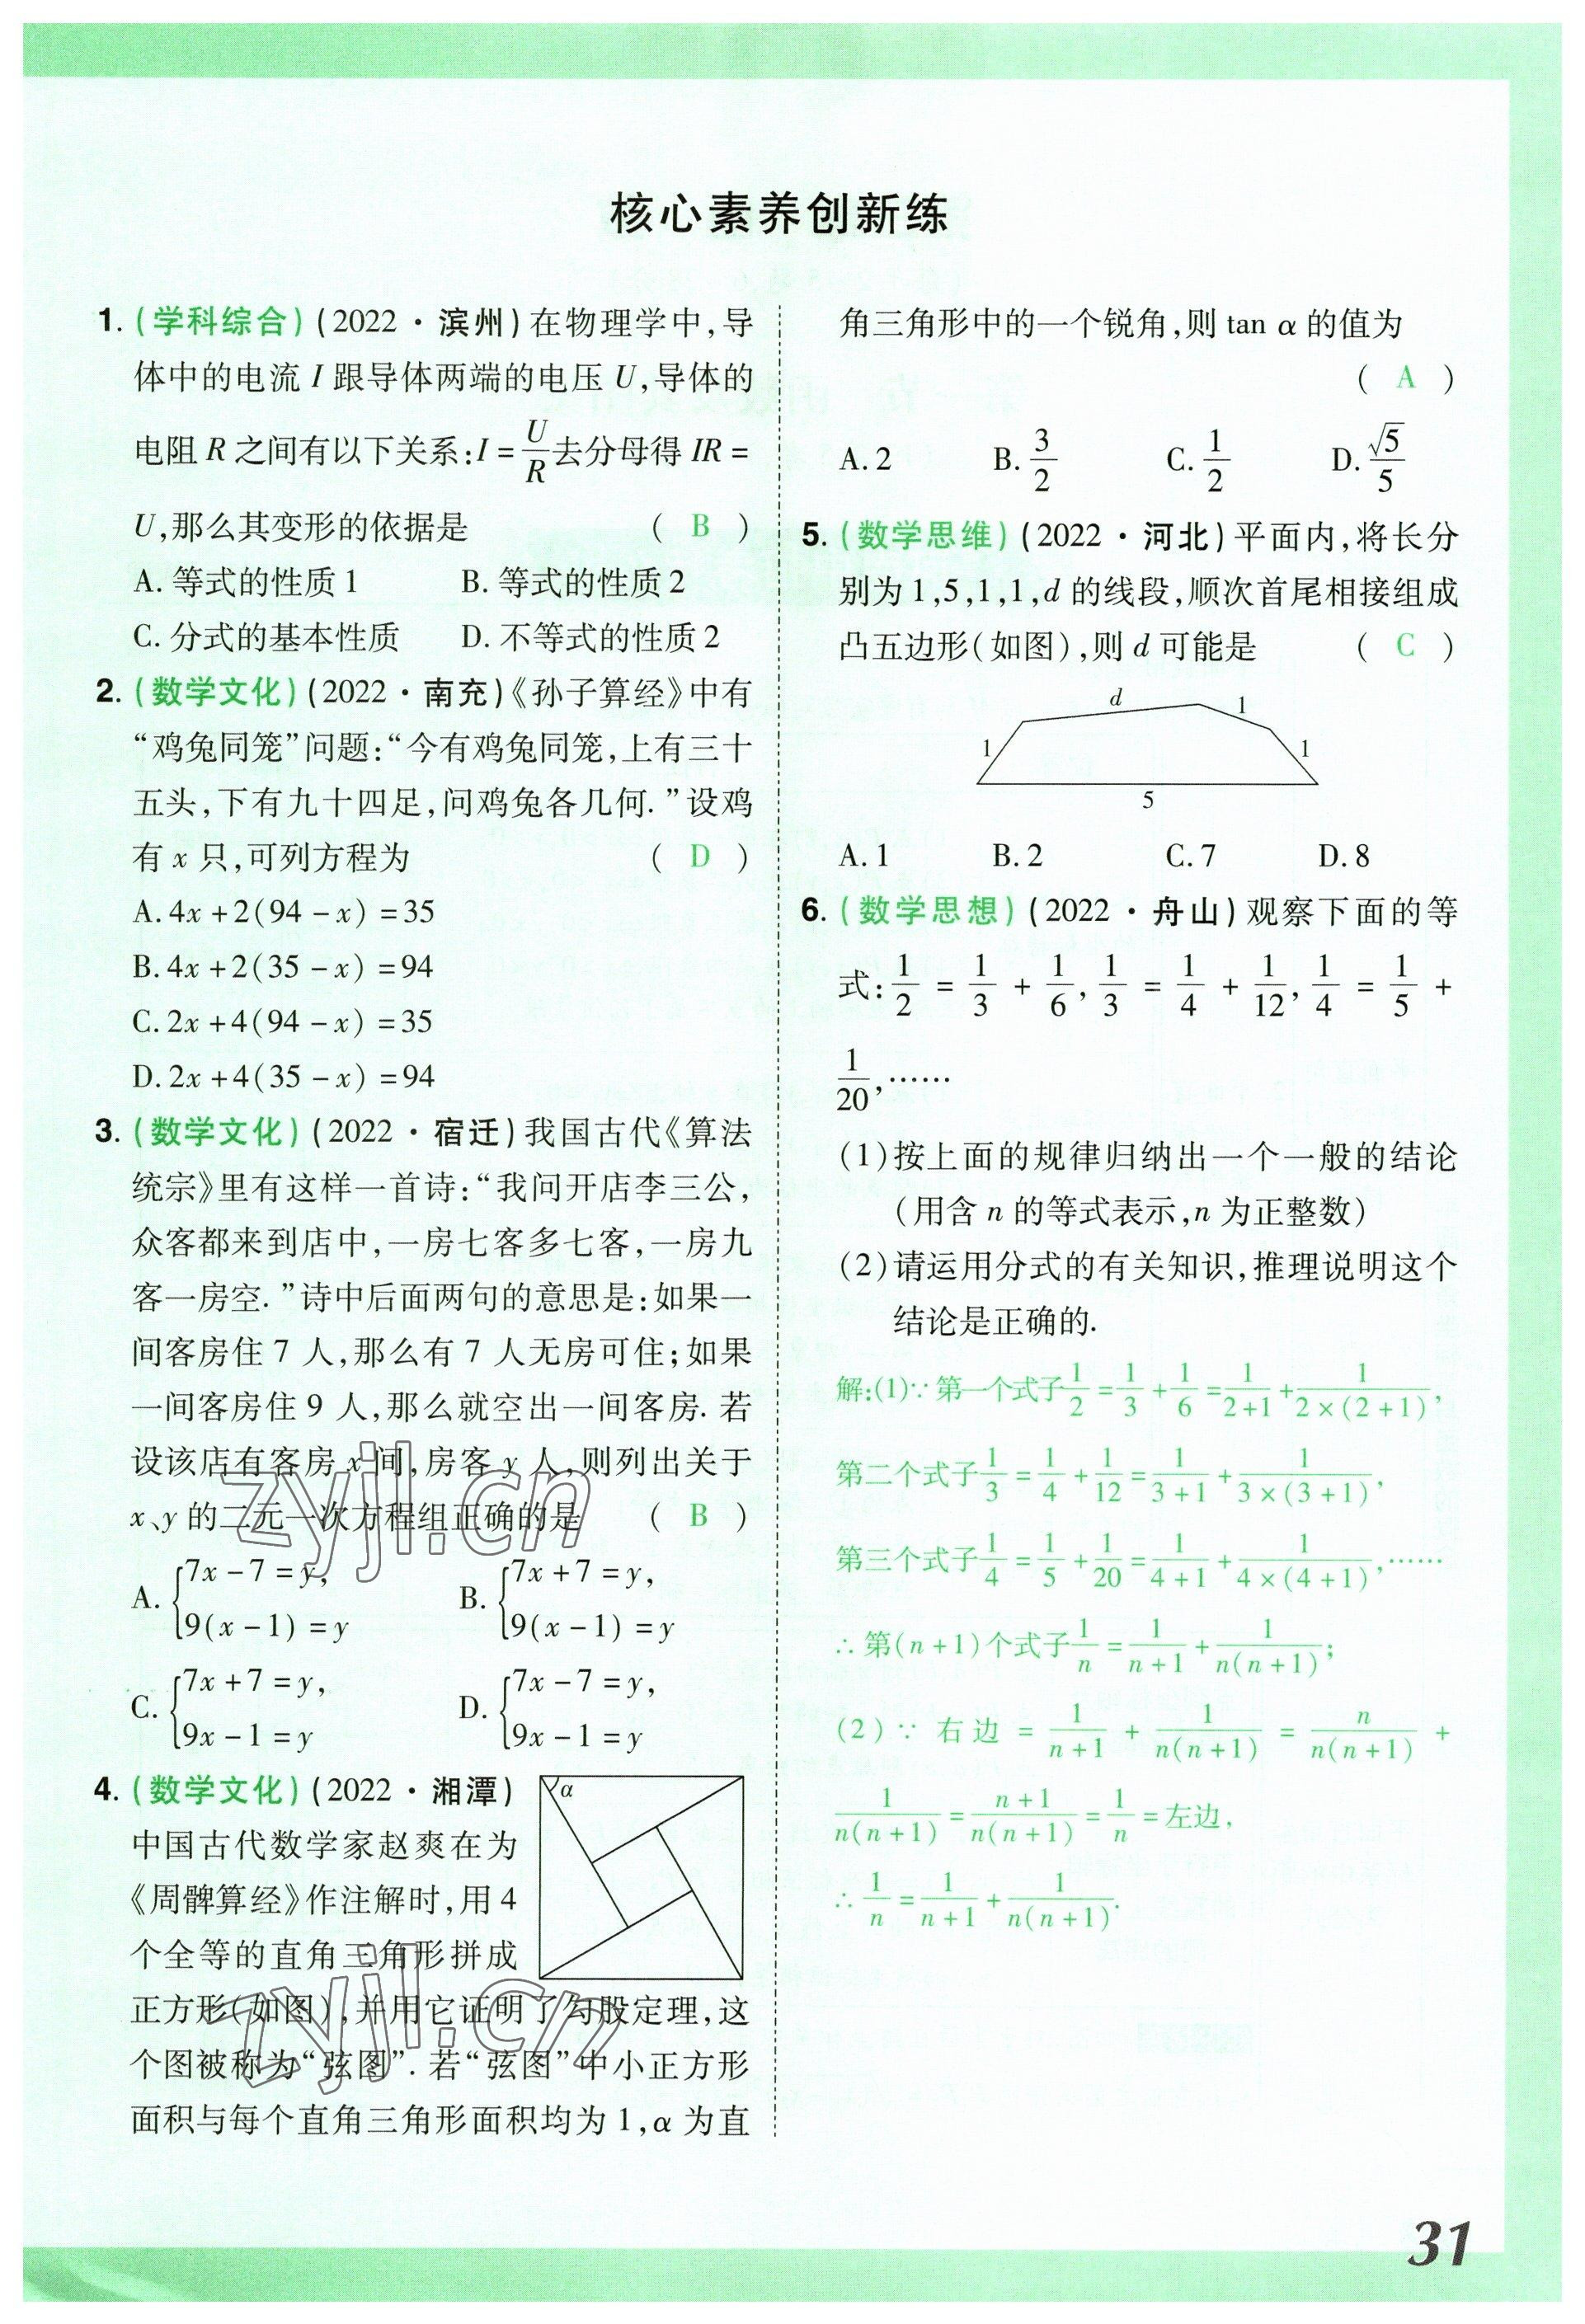 核心素养创新练
1. (学科综合)(2022·滨州)在物理学中,导
体中的电流 I 跟导体两端的电压 U,导体的
电阻 R 之间有以下关系:I = U/R 去分母得 IR =
U,那么其变形的依据是 ( B )
A. 等式的性质 1 B. 等式的性质 2
C. 分式的基本性质 D. 不等式的性质 2
2. (数学文化)(2022·南充)《孙子算经》中有
“鸡兔同笼”问题:“今有鸡兔同笼,上有三十
五头,下有九十四足,问鸡兔各几何.”设鸡
有 x 只,可列方程为 ( D )
A. 4x + 2(94 - x) = 35
B. 4x + 2(35 - x) = 94
C. 2x + 4(94 - x) = 35
D. 2x + 4(35 - x) = 94
3. (数学文化)(2022·宿迁)我国古代《算法
统宗》里有这样一首诗:“我问开店李三公,
众客都来到店中,一房七客多七客,一房九
客一房空.”诗中后面两句的意思是:如果一
间客房住 7 人,那么有 7 人无房可住;如果
一间客房住 9 人,那么就空出一间客房. 若
设该店有客房 x 间,房客 y 人,则列出关于
x、y 的二元一次方程组正确的是 ( B )
A. {7x - 7 = y, 9(x - 1) = y B. {7x + 7 = y, 9(x - 1) = y
C. {7x + 7 = y, 9x - 1 = y D. {7x - 7 = y, 9x - 1 = y
4. (数学文化)(2022·湘潭)
α
中国古代数学家赵爽在为
《周髀算经》作注解时,用 4
个全等的直角三角形拼成
正方形(如图),并用它证明了勾股定理,这
个图被称为“弦图”. 若“弦图”中小正方形
面积与每个直角三角形面积均为 1,α 为直
角三角形中的一个锐角,则 tan α 的值为
( A )
A. 2 B. 3/2 C. 1/2 D. √5/5
5. (数学思维)(2022·河北)平面内,将长分
别为 1,5,1,1,d 的线段,顺次首尾相接组成
凸五边形(如图),则 d 可能是 ( C )
d 1
1 1
5
A. 1 B. 2 C. 7 D. 8
6. (数学思想)(2022·舟山)观察下面的等
式: 1/2 = 1/3 + 1/6, 1/3 = 1/4 + 1/12, 1/4 = 1/5 +
1/20,……
(1)按上面的规律归纳出一个一般的结论
(用含 n 的等式表示,n 为正整数)
(2)请运用分式的有关知识,推理说明这个
结论是正确的.
解:(1)∵第一个式子 1/2 = 1/3 + 1/6 = 1/(2+1) + 1/(2×(2+1)),
第二个式子 1/3 = 1/4 + 1/12 = 1/(3+1) + 1/(3×(3+1)),
第三个式子 1/4 = 1/5 + 1/20 = 1/(4+1) + 1/(4×(4+1)),……
∴第(n+1)个式子 1/n = 1/(n+1) + 1/(n(n+1));
(2)∵右边 = 1/(n+1) + 1/(n(n+1)) = n/(n(n+1)) +
1/(n(n+1)) = (n+1)/(n(n+1)) = 1/n = 左边,
∴ 1/n = 1/(n+1) + 1/(n(n+1)).
zyjl.cn
zyjl.cn
31